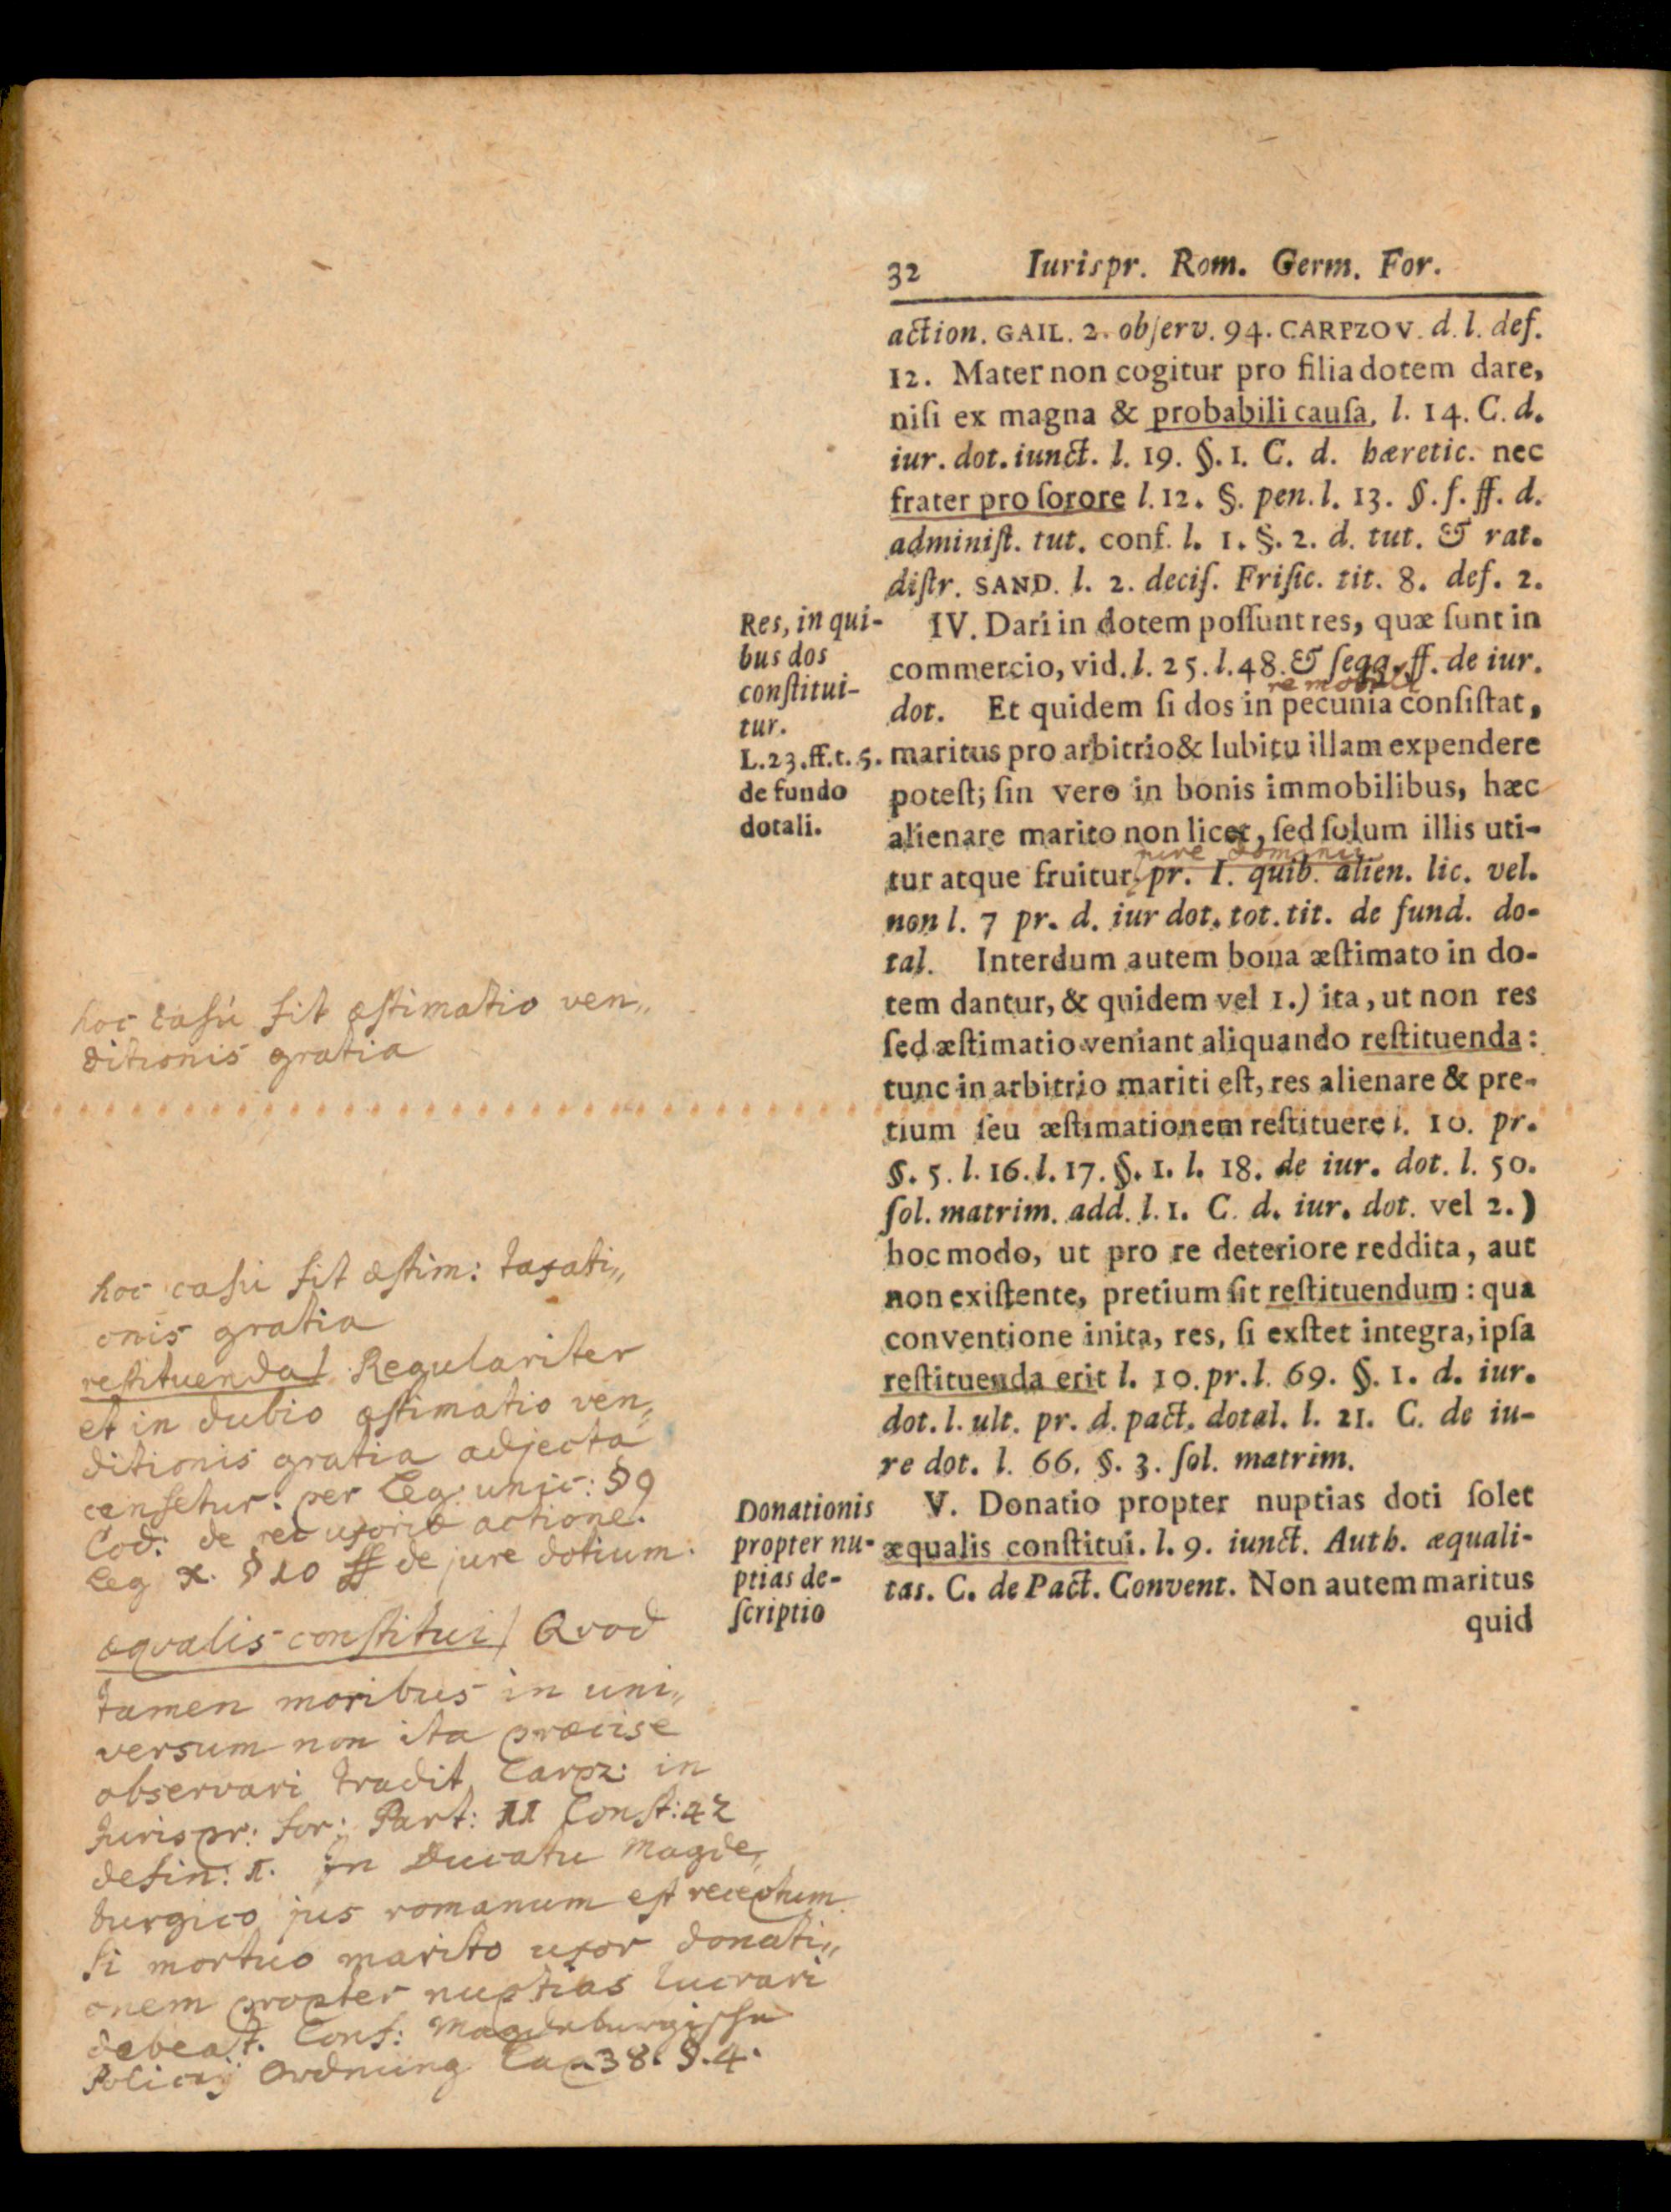 32 Iurispr. Rom. Germ. For.
action. GAIL. 2. obſerv. 94. CARPZOV. d. l. def.
12. Mater non cogitur pro filia dotem dare,
niſi ex magna & probabili cauſa, l. 14. C. d.
iur. dot. iunct. l. 19. §. 1. C. d. hæretic. nec
frater pro ſorore l. 12. §. pen. l. 13. §. f. ff. d.
adminiſt. tut. conf. l. 1. §. 2. d. tut. & rat.
diſtr. SAND. l. 2. deciſ. Friſic. tit. 8. def. 2.
Res, in qui-
bus dos
conſtitui-
tur.
L. 23. ff. t. 5.
de fundo
dotali.
IV. Dari in dotem poſſunt res, quæ ſunt in
commercio, vid. l. 25. l. 48. & ſeqq. ff. de iur.
re mobili
dot. Et quidem ſi dos in pecunia conſiſtat,
maritus pro arbitrio & lubitu illam expendere
poteſt; ſin vero in bonis immobilibus, hæc
alienare marito non licet, ſed ſolum illis uti-
jure dominii
tur atque fruitur, pr. I. quib. alien. lic. vel.
non l. 7 pr. d. iur dot. tot. tit. de fund. do-
tal. Interdum autem bona æſtimato in do-
tem dantur, & quidem vel 1.) ita, ut non res
ſed æſtimatio veniant aliquando reſtituenda:
tunc in arbitrio mariti eſt, res alienare & pre-
tium ſeu æſtimationem reſtituere l. 10. pr.
§. 5. l. 16. l. 17. §. 1. l. 18. de iur. dot. l. 50.
ſol. matrim. add. l. 1. C. d. iur. dot. vel 2.)
hoc modo, ut pro re deteriore reddita, aut
non exiſtente, pretium ſit reſtituendum: qua
conventione inita, res, ſi exſtet integra, ipſa
reſtituenda erit l. 10. pr. l. 69. §. 1. d. iur.
dot. l. ult. pr. d. pact. dotal. l. 21. C. de iu-
re dot. l. 66. §. 3. ſol. matrim.
Donationis
propter nu-
ptias de-
ſcriptio
V. Donatio propter nuptias doti ſolet
æqualis conſtitui. l. 9. iunct. Auth. æquali-
tas. C. de Pact. Convent. Non autem maritus
quid
hoc casu fit æstimatio ven„
ditionis gratia
hoc casu fit æstim: taxati„
onis gratia
restituenda] Regulariter
et in dubio æstimatio ven„
ditionis gratia adjecta
censetur. per Leg: unic: § 9
Cod: de rei uxoriæ actione.
Leg X. § 10 ff de jure dotium.
æqvalis constitui] Qvod
tamen moribus in uni„
versum non ita præcise
observari tradit Carpz: in
Jurispr: for: Part: II Const: 42
defin: I. In Ducatu Magde„
burgico jus romanum est receptum
Si mortuo marito uxor donati„
onem propter nuptias lucrari
debeat. Conf: Magdeburgische
Policey Ordnung Cap 38. §. 4.